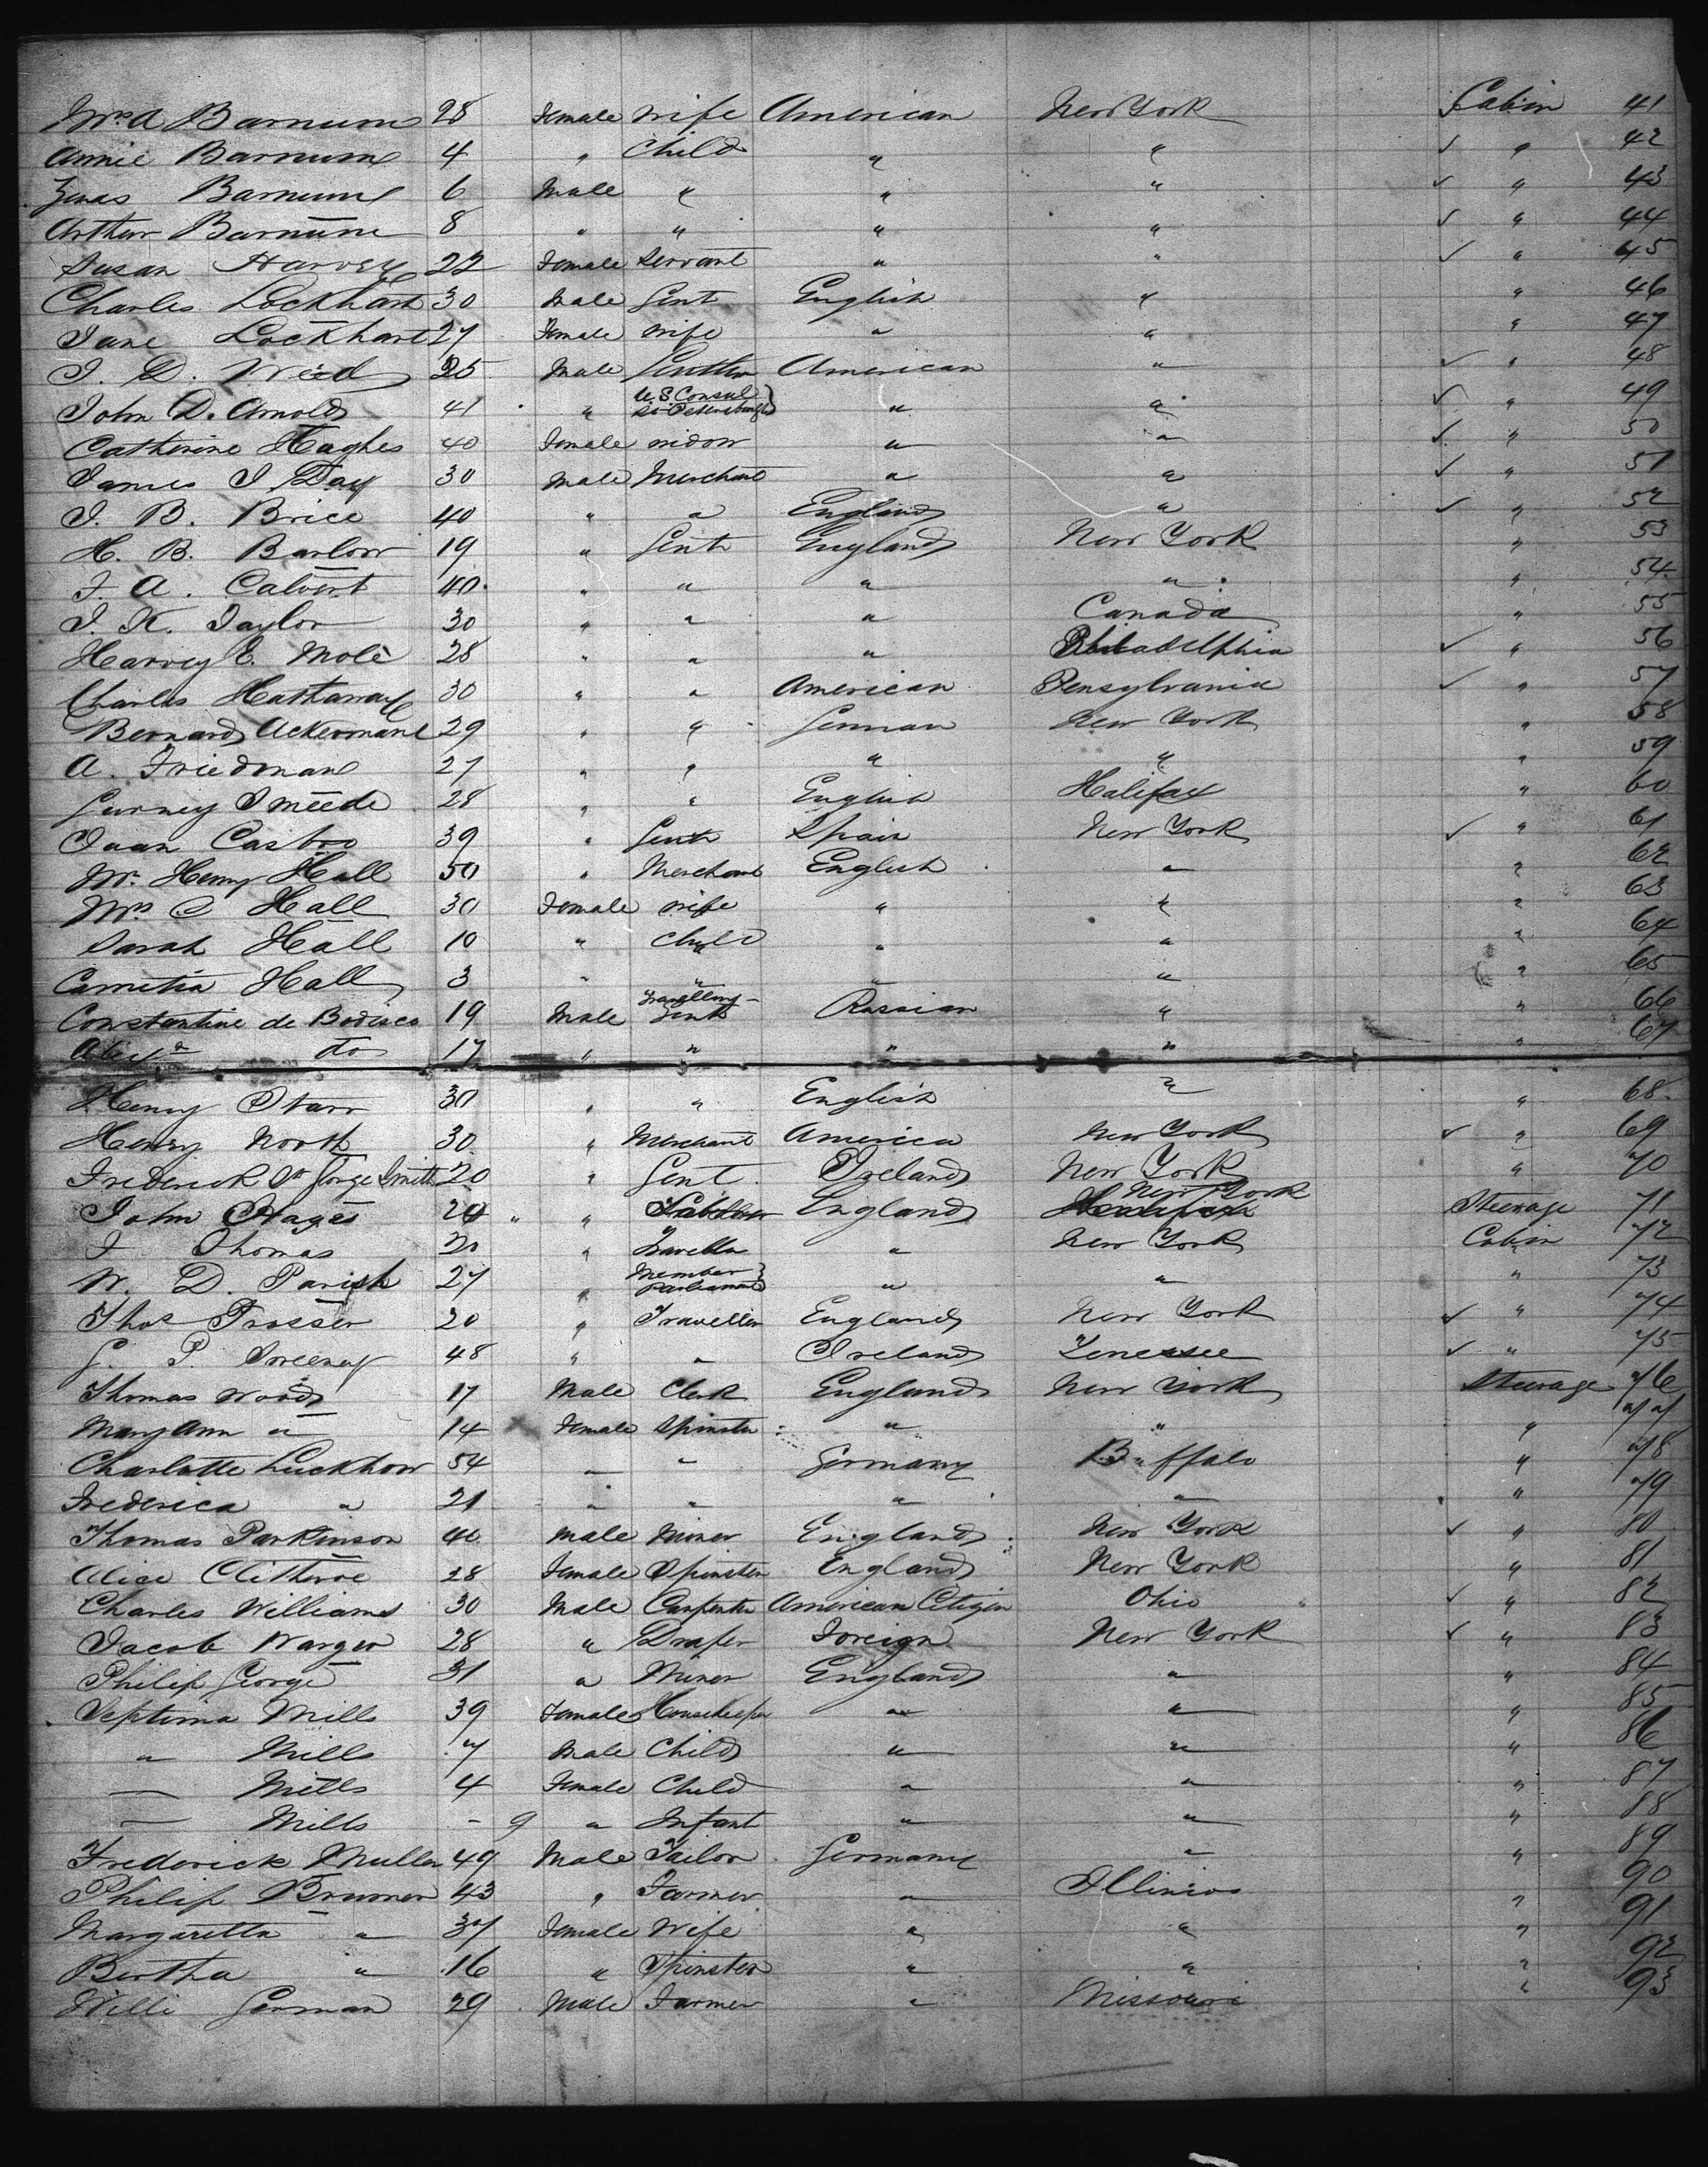 Mrs A Barnum 28 Female Wife American New York Cabin 41
Annie Barnum 4 " Child " " ✓ " 42
Zenas Barnum 6 Male " " " ✓ " 43
Arthur Barnum 8 " " " " ✓ " 44
Susan Harvey 22 Female Servant " " ✓ " 45
Charles Lockhart 30 Male Gent English " " 46
Jane Lockhart 27 Female Wife " " " 47
J. D. Weed 25 Male Gentln American " ✓ " 48
John D. Arnold 41 " U.S. Consul St Petersburgh " " ✓ " 49
Catherine Hughes 40 Female Widow " " ✓ " 50
James I Day 30 Male Merchant " " ✓ " 51
J. B. Brice 40 " " England " ✓ " 52
H. B. Barlow 19 " Gent England New York " 53
J. A. Calvert 40 " " " " " 54
J. K. Taylor 30 " " " Canada " 55
Harvey E. Mole 28 " " " Philadelphia ✓ " 56
Charles Hattaway 30 " " American Pensylvania ✓ " 57
Bernard Ackermann 29 " " German New York " 58
A. Friedman 27 " " " " " 59
Gurney Smeede 28 " " English Halifax " 60
Juan Castro 39 " Gent Spain New York ✓ " 61
Mr Henry Hall 50 " Merchant English " " 62
Mrs C Hall 30 Female Wife " " " 63
Sarah Hall 10 " Child " " " 64
Hall 3 " " " " " 65
Constantine de Bodisco 19 Male Travelling Gent Russian " " 66
Alexr do 17 " " " " " 67
Henry Starr 30 " " English " " 68
Henry North 30 " Merchant America New York ✓ " 69
Frederick St George Smith 20 " Gent Ireland New York " 70
John Hayes 20 " England New York Steerage 71
J Thomas 20 " Traveller " New York Cabin 72
W. D. Parish 27 " Member Parliament " " " 73
Thos Prosser 20 " Traveller England New York ✓ " 74
G. P. Sweeny 48 " " Ireland Tenessee ✓ " 75
Thomas Woods 17 Male Clerk England New York Steerage 76
Mary Ann " 14 Female Spinster " " " 77
Charlotte Luckhow 54 " " Germany Buffalo " 78
Frederica " 21 " " " " " 79
Thomas Parkinson 40 Male Miner England New York ✓ " 80
Alice Clitheroe 28 Female Spinster England New York " 81
Charles Williams 30 Male Carpenter American Citizen Ohio ✓ " 82
Jacob Warger 28 " Draper Foreign New York ✓ " 83
Philip George 31 " Miner England " " 84
Septima Mills 39 Female Housekeeper " " " 85
" Mills 7 Male Child " " " 86
— Mills 4 Female Child " " " 87
— Mills - 9 " Infant " " " 88
Frederick Muller 49 Male Tailor Germany " " 89
Philip Brunner 43 " Farmer " Illinios " 90
Margaretta " 37 Female Wife " " " 91
Bertha " 16 " Spinster " " " 92
Willi German 29 Male Farmer " Missouri " 93